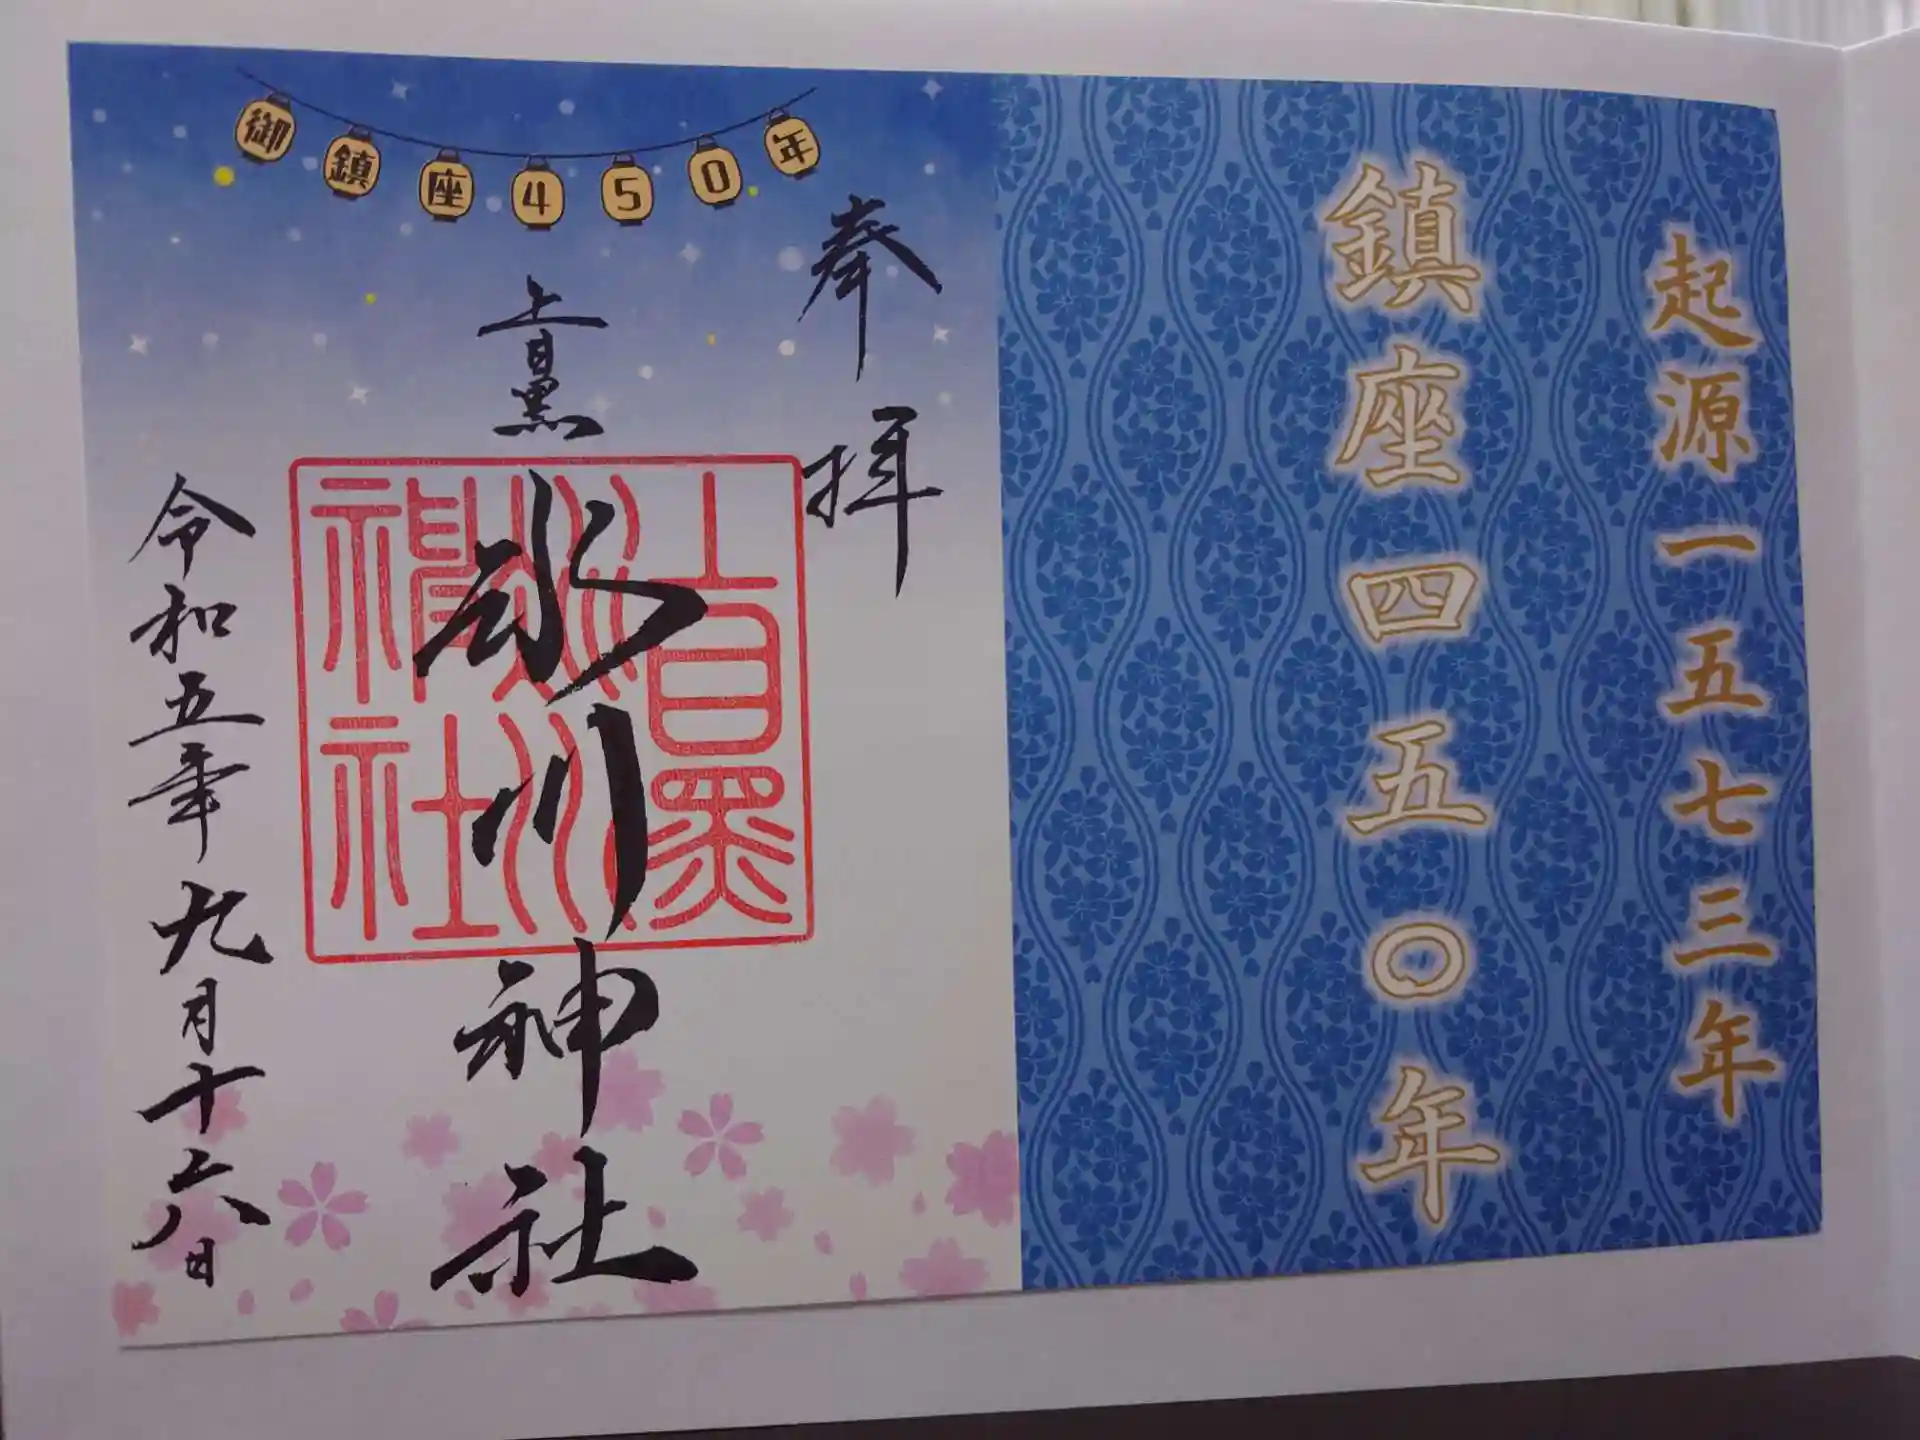 起源一五七三年
鎮座四五〇年
御鎮座450年
奉拝
上目黒
氷川神社
上目黒
氷川
神社
令和五年九月十六日